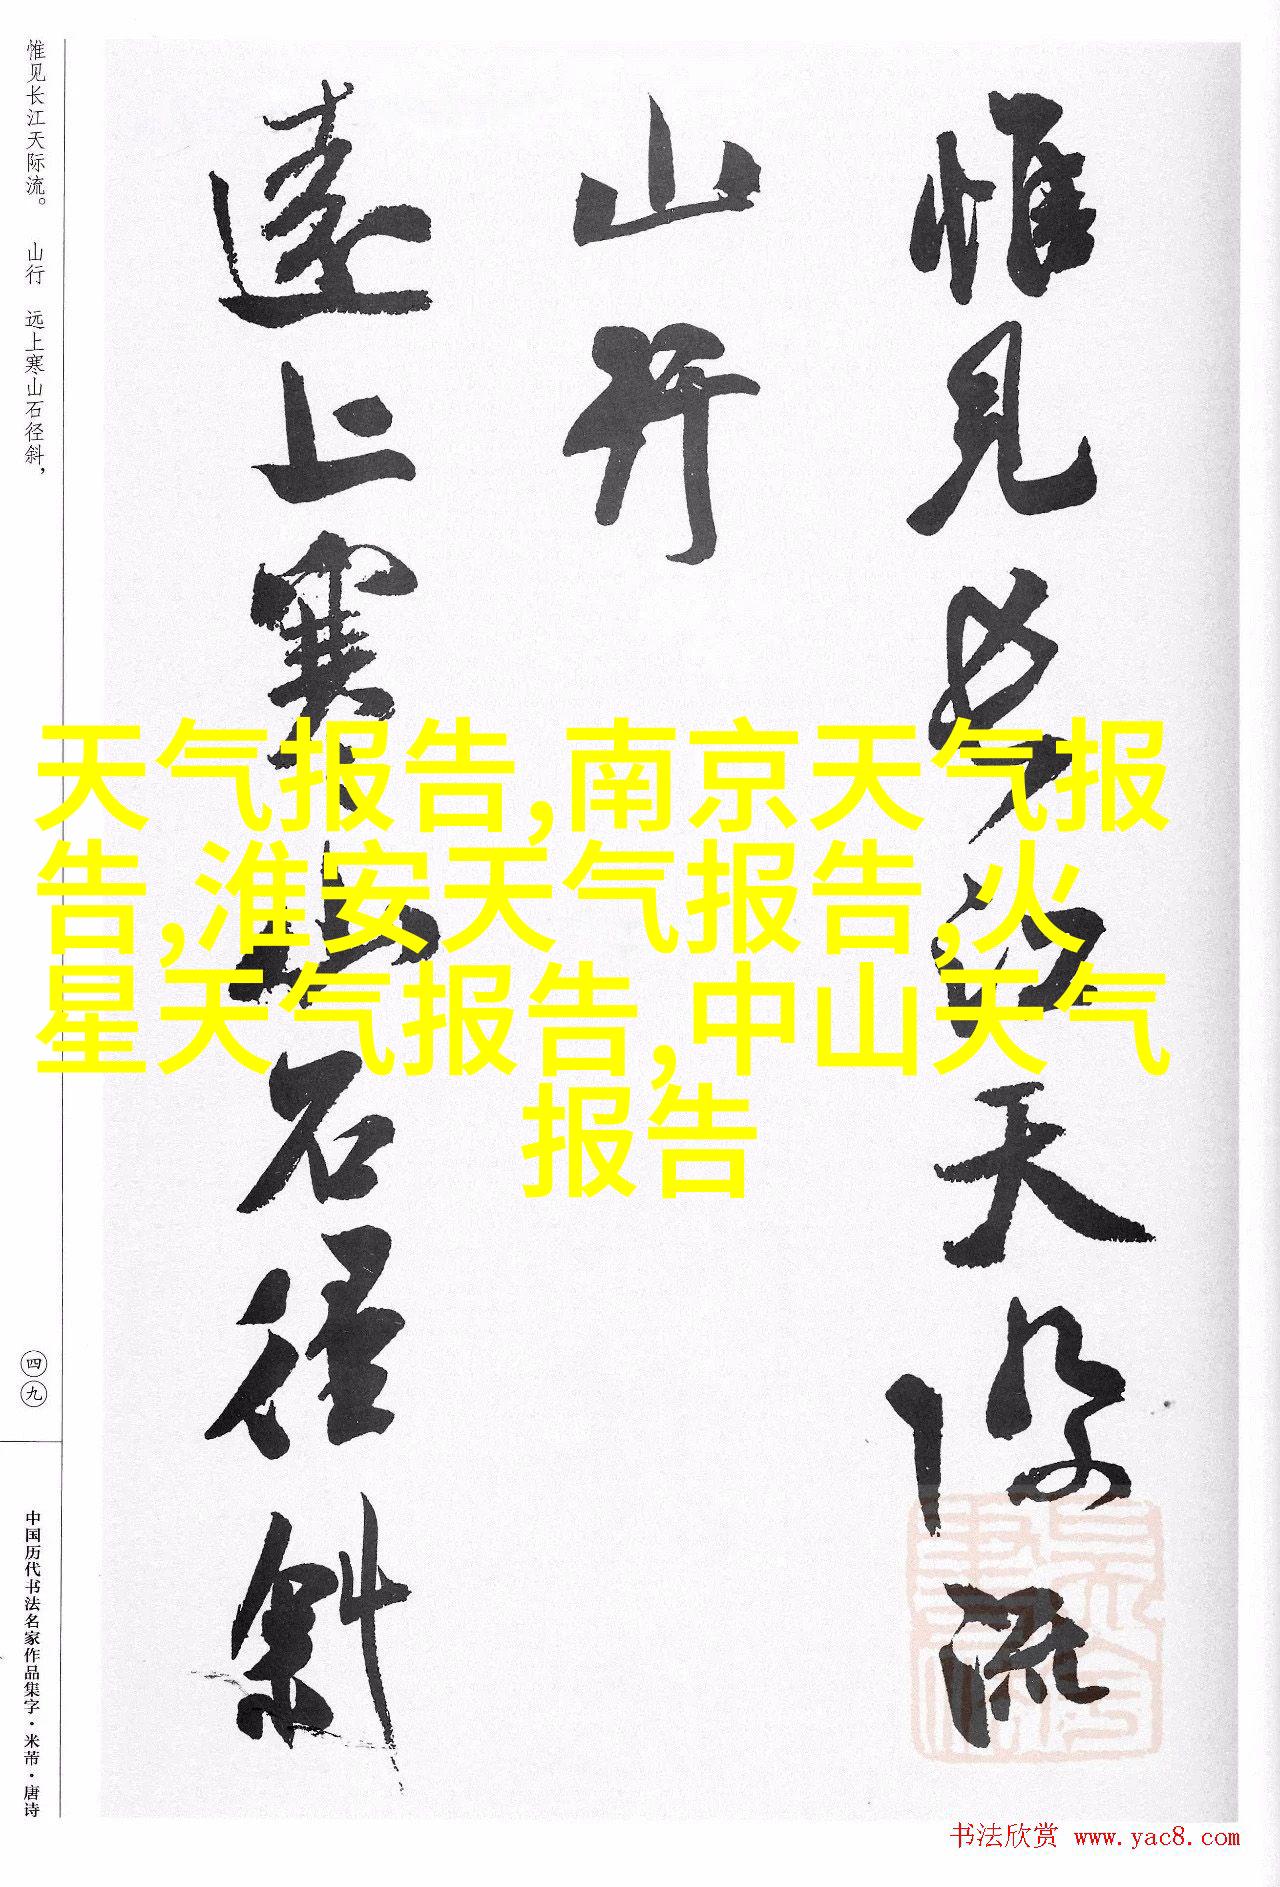 惟见长江天际流
山行
远上寒山石径斜
天气报告,南京天气报
告,淮安天气报告,火
星天气报告,中山天气
报告
惟见长江天际流。 山行 远上寒山石径斜,
四九
中国历代书法名家作品集字·米芾·唐诗
书法欣赏 www.yac8.com